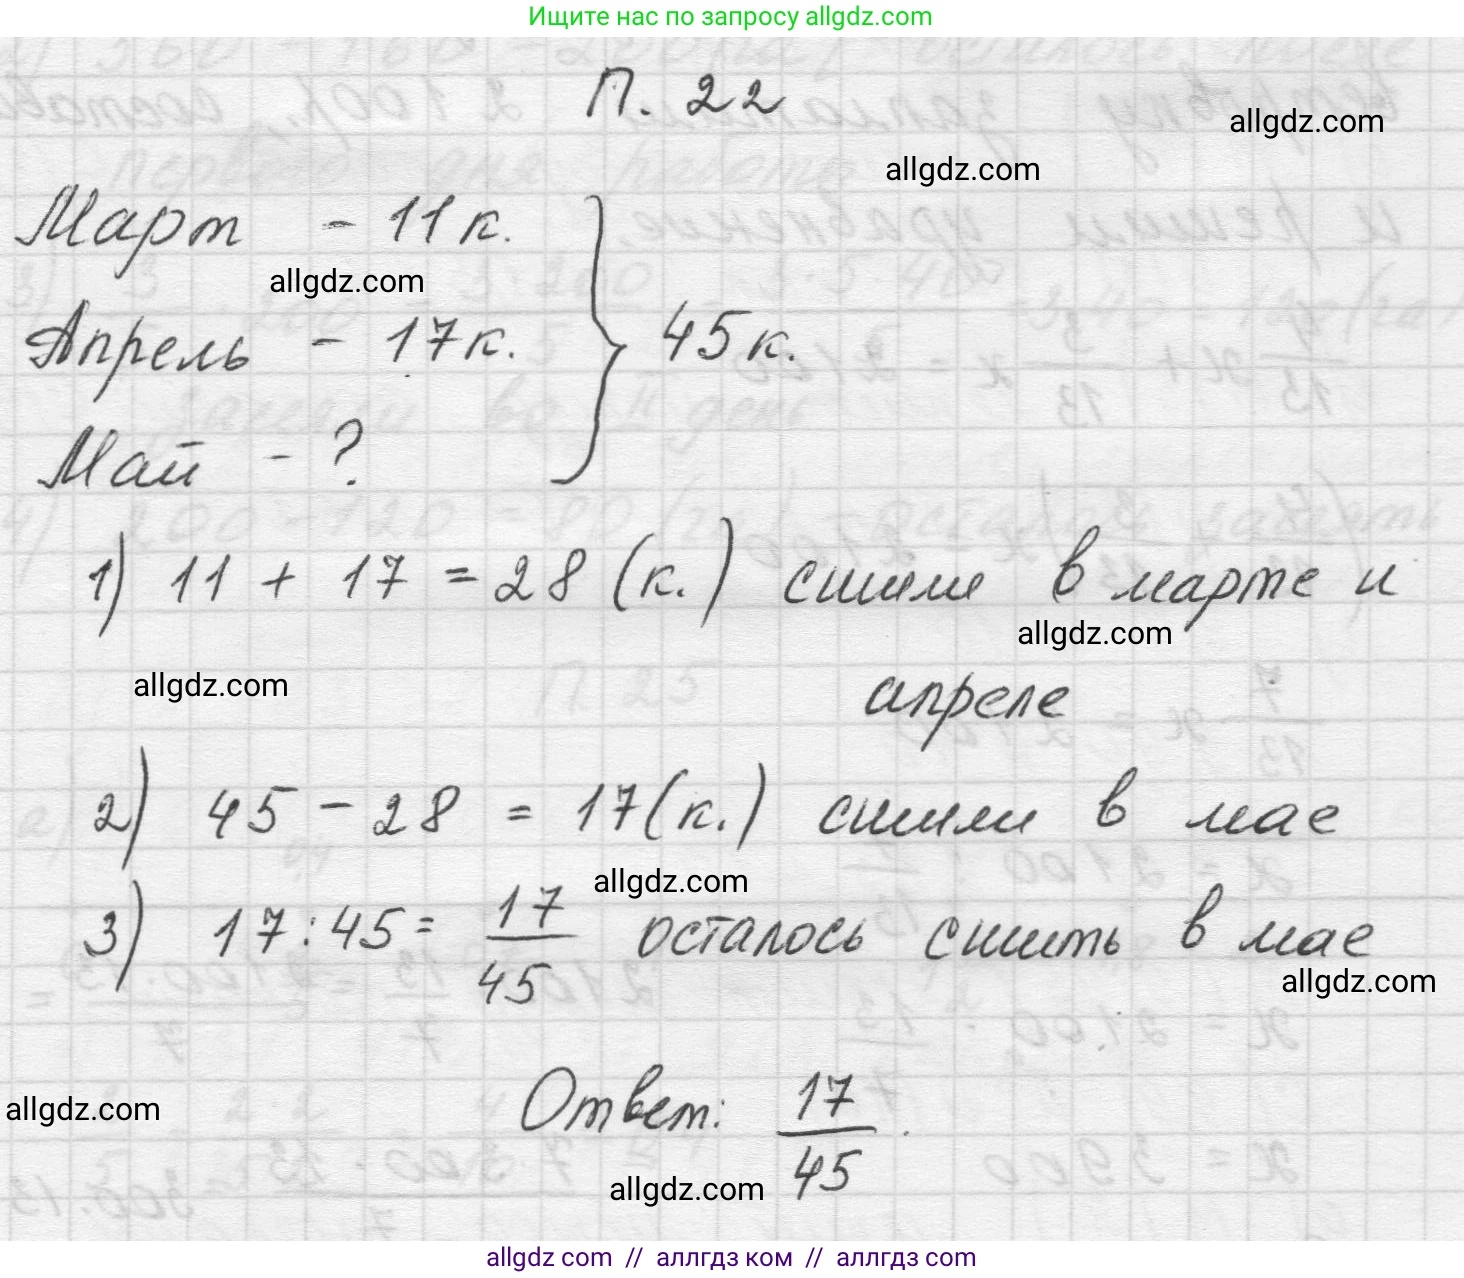 Ищите нас по запросу allgdz.com
П. 22
allgdz.com
allgdz.com
Март - 11 к.
allgdz.com
Апрель - 17 к. } 45 к.
Май - ?
1) 11 + 17 = 28 (к.) сшили в марте и
allgdz.com
allgdz.com
апреле
2) 45 - 28 = 17 (к.) сшили в мае
allgdz.com
3) 17 : 45 = 17/45 осталось сшить в мае
allgdz.com
Ответ: 17/45.
allgdz.com
allgdz.com
allgdz.com // аллгдз ком // аллгдз com